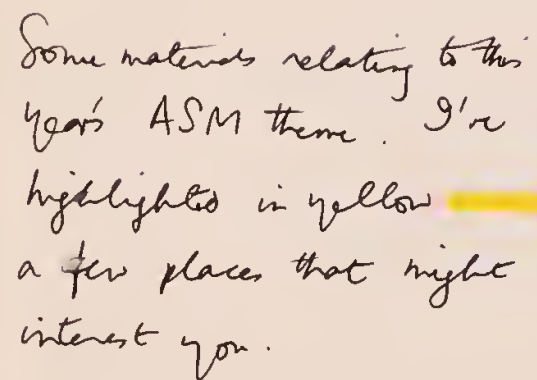 Some materials relating to this
year's ASM theme. I've
highlighted in yellow
a few places that might
interest you.